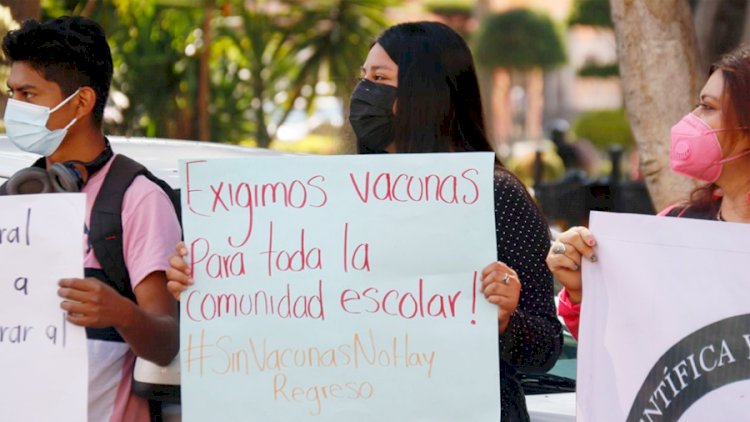 ral
a
rar al
Exigimos vacunas
Para toda la
comunidad escolar!
#SinVacunasNoHay
Regreso
NTÍFICA